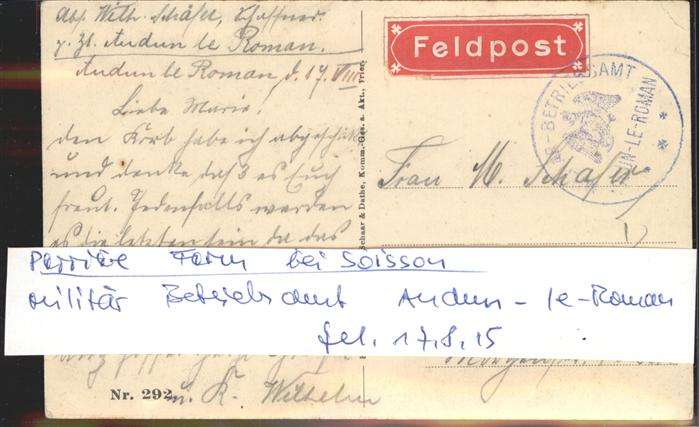 Abs. Wilh. Schäfer, Schaffner
z. Zt. Audun le Roman.
Audun le Roman, d. 17. VIII
Liebe Marie!
den Korb habe ich abgeschickt
und denke daß es Euch
freut. Jedenfalls werden
es die letzten sein da das
u. K. Wilhelm
Nr. 292
Schaar & Dathe, Komm.-Ges. a. Akt., Trier
Feldpost
BETRIEBSAMT
UN-LE-ROMAN
Frau M. Schäfer
Perrière Farm bei Soisson
militär Betriebsamt Audun-le-Roman
gel. 17.8.15